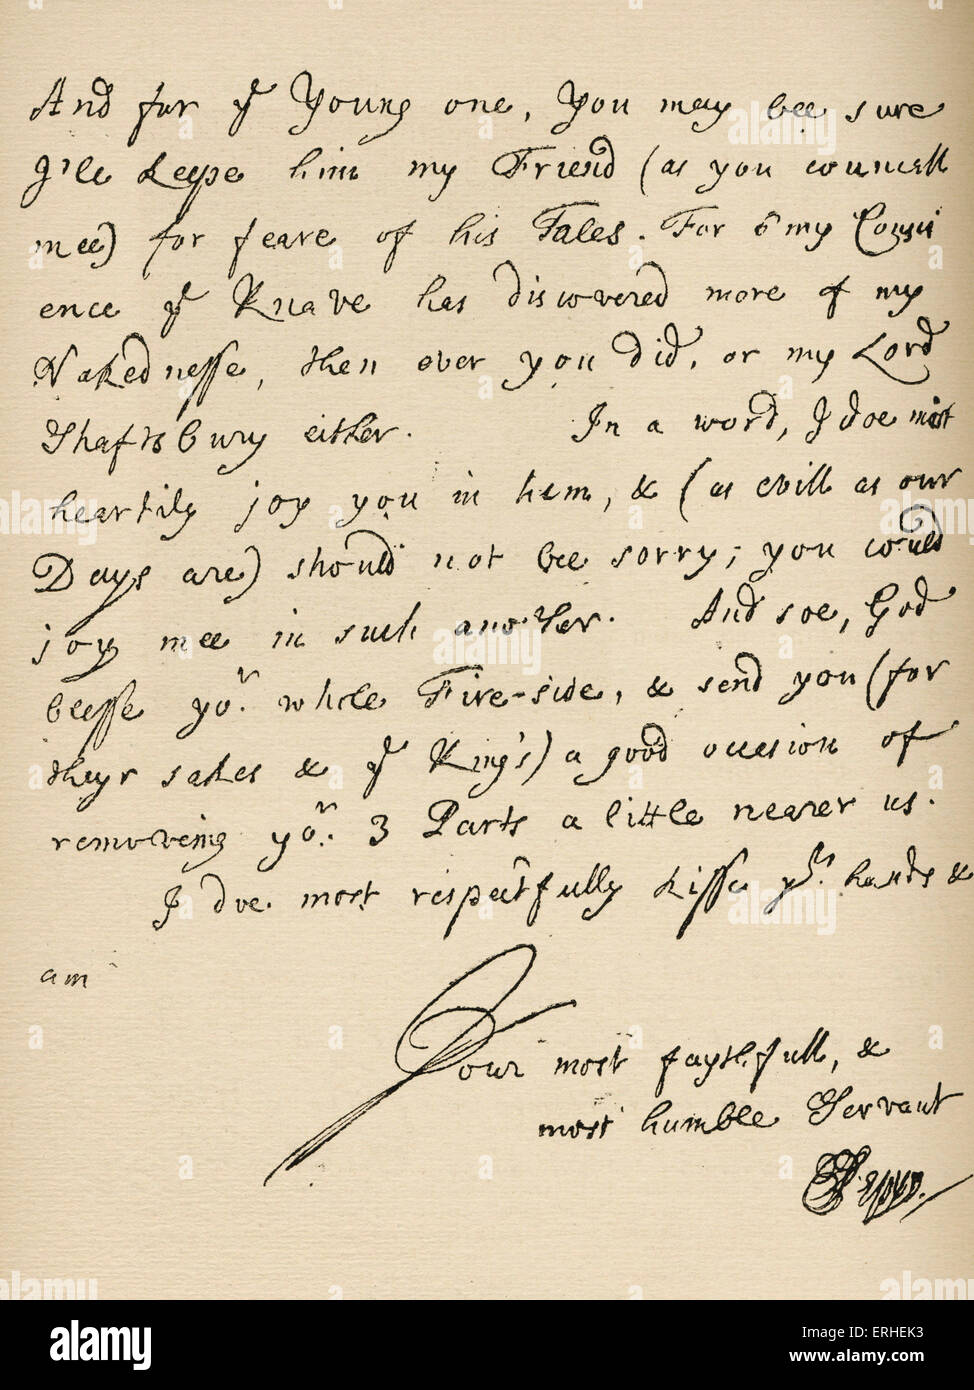 And for yᵉ Young one, You may bee sure
I'le keepe him my Friend (as you councell
mee) for feare of his Tales. For o' my Consci
ence yᵉ Knave has discovered more of my
Nakednesse, then ever you did, or my Lord
Shaftsbury either. In a word, I doe most
heartily joy you in him, & (as evill as our
Days are) should not bee sorry; you could
joy mee in such another. And soe, God
blesse yoʳ. whole Fire-side, & send you (for
theyr sakes & yᵉ King's) a good occasion of
removeing yoʳ. 3 Parts a little nearer us.
I doe most respectfully kisse yʳ. hands &
am
Your most faythfull, &
most humble Servant
SPepys.
alamy
Image ID: ERHEK3
www.alamy.com